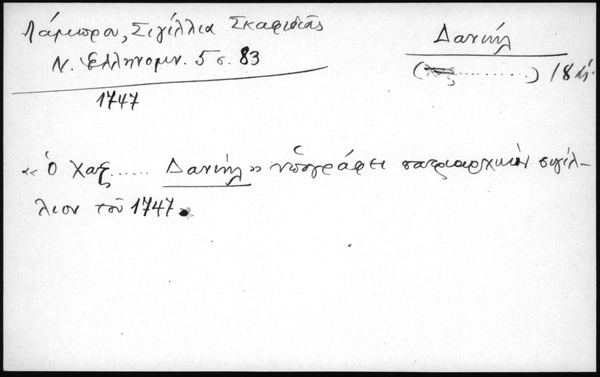 Λάμπρου, Σιγίλλια Σκαφιδιᾶς
Ν. Ἑλληνομν. 5 σ. 83
1747
Δανιήλ
(........) 18 αἰ.
«Ὁ Χαζ...... Δανιήλ» ὑπογράφει πατριαρχικὸν σιγίλ-
λιον τοῦ 1747.